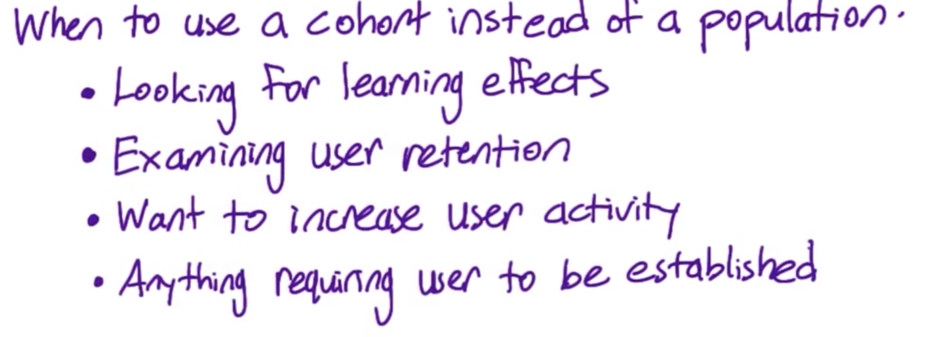 When to use a cohort instead of a population.
• Looking for learning effects
• Examining user retention
• Want to increase user activity
• Anything requiring user to be established